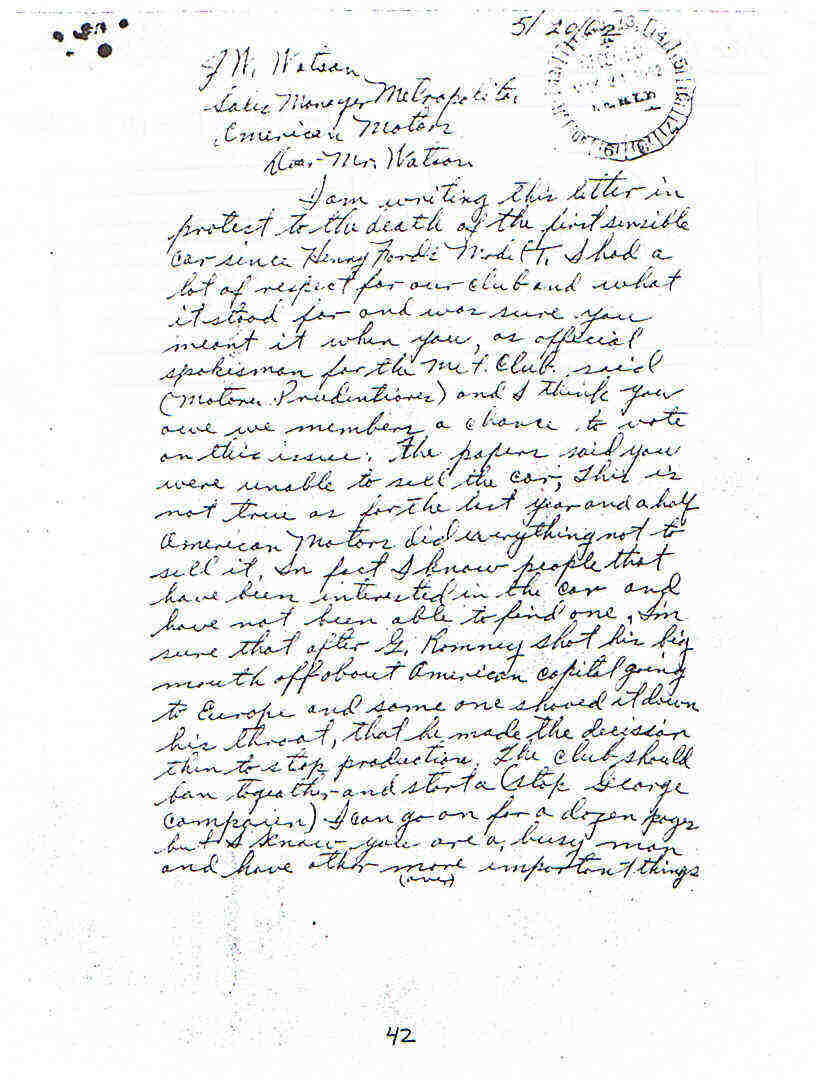 5/20/62
J W. Watson
Sales Manager Metropolitan
American Motors
Dear Mr. Watson
I am writing this letter in
protest to the death of the first sensible
car since Henry Ford's Model T. I had a
lot of respect for our club and what
it stood for and was sure you
meant it when you, as official
spokesman for the Met. Club, said
(Motores Prudentiores) and I think you
owe we members a chance to vote
on this issue. The papers said you
were unable to sell the car; this is
not true as for the last year and a half
American Motors did everything not to
sell it. In fact I know people that
have been interested in the car and
have not been able to find one. I'm
sure that after G. Romney shot his big
mouth off about American capital going
to Europe and some one shoved it down
his throat, that he made the decission
then to stop production. The club should
ban togeather and start a (stop George
campaien) I can go on for a dozen pages
but I know you are a busy man
and have other more important things
(over)
42